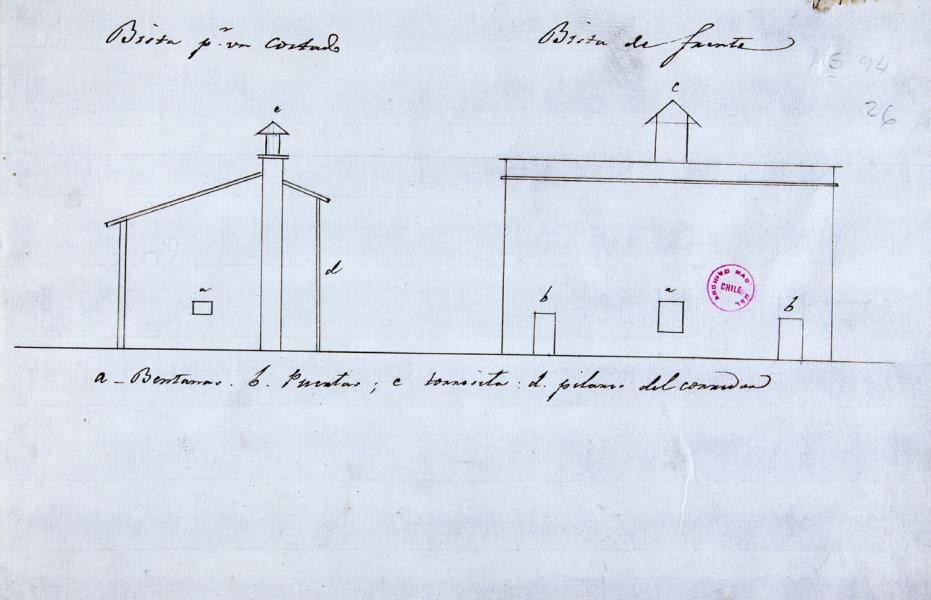 Bista pr. un costado
Bista de frente
MS 94
26
c
c
d
a
b
a
b
ARCHIVO NACIONAL
CHILE
a - Bentanas. b. Puertas; c torresita: d. pilares del corredor